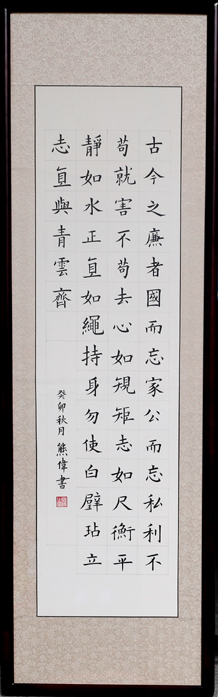 古今之廉者國而忘家公而忘私利不
苟就害不苟去心如規矩志如尺衡平
靜如水正直如繩持身勿使白璧玷立
志直與青雲齊
癸卯秋月熊偉書